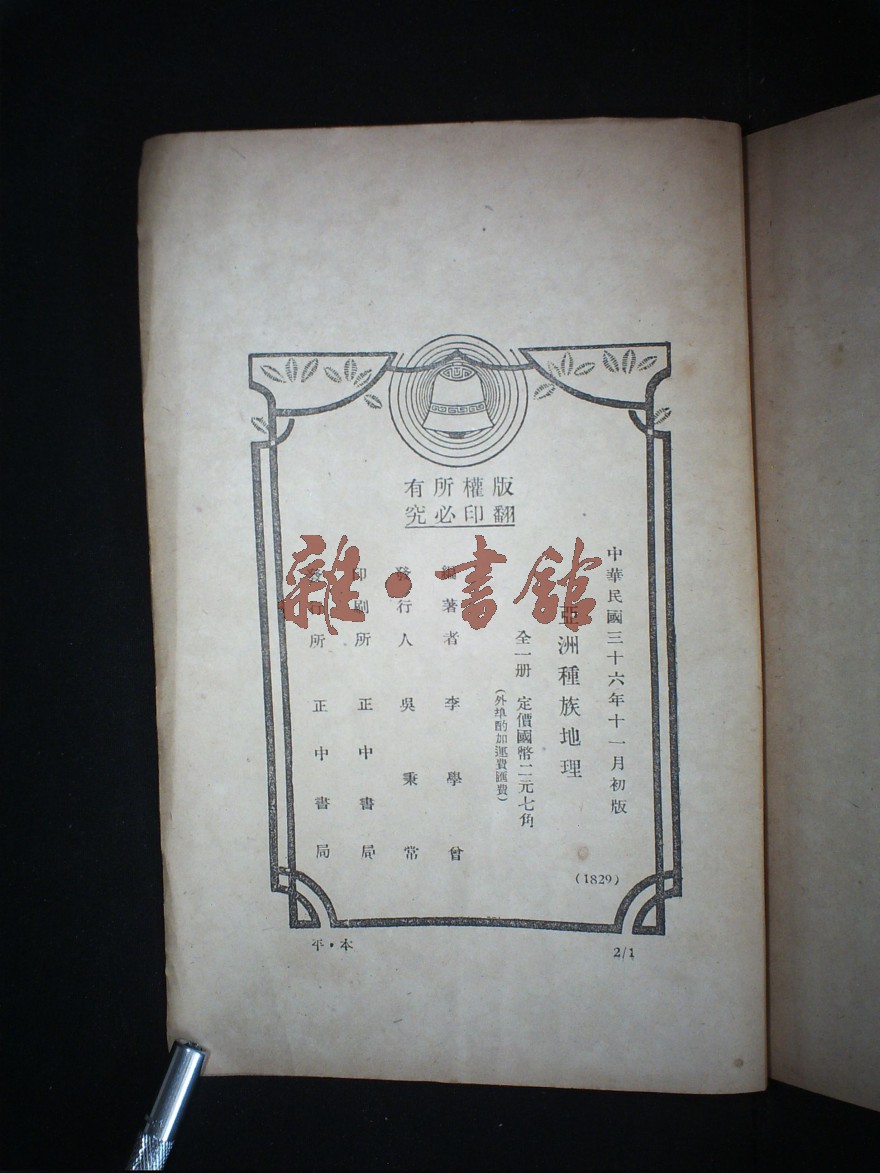 版權所有
翻印必究
中華民國三十六年十一月初版
亞洲種族地理
全一册 定價國幣二元七角
(外埠酌加運費匯費)
編著者 李學曾
發行人 吳秉常
印刷所 正中書局
發行所 正中書局
(1829)
平·本
2/1
雜·書館